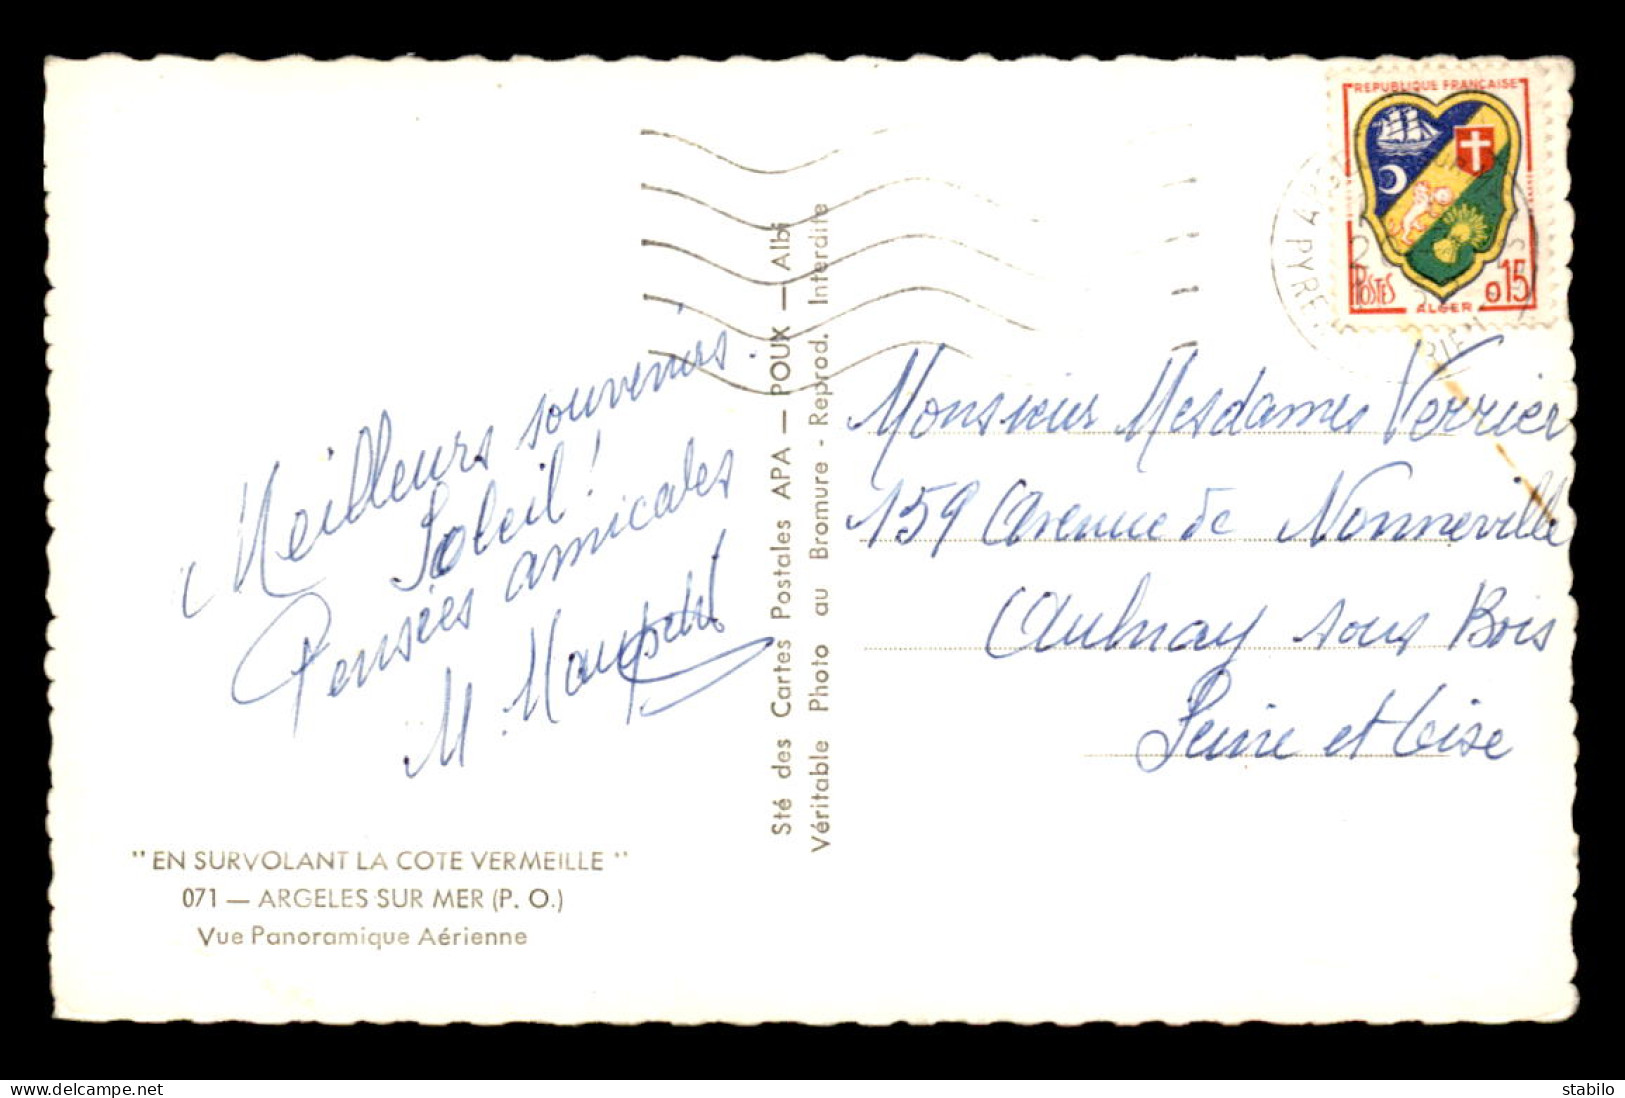 Meilleurs souvenirs.
Soleil !
Pensées amicales
M. Maupetit
" EN SURVOLANT LA COTE VERMEILLE "
071 — ARGELES SUR MER (P. O.)
Vue Panoramique Aérienne
Sté des Cartes Postales APA — POUX — Albi
Véritable Photo au Bromure - Reprod. Interdite
REPUBLIQUE FRANÇAISE
POSTES
0,15
ALGER
Monsieur Mesdames Verrier
159 Avenue de Nonneville
Aulnay sous Bois
Seine et Oise
stabilo
delcampe.net